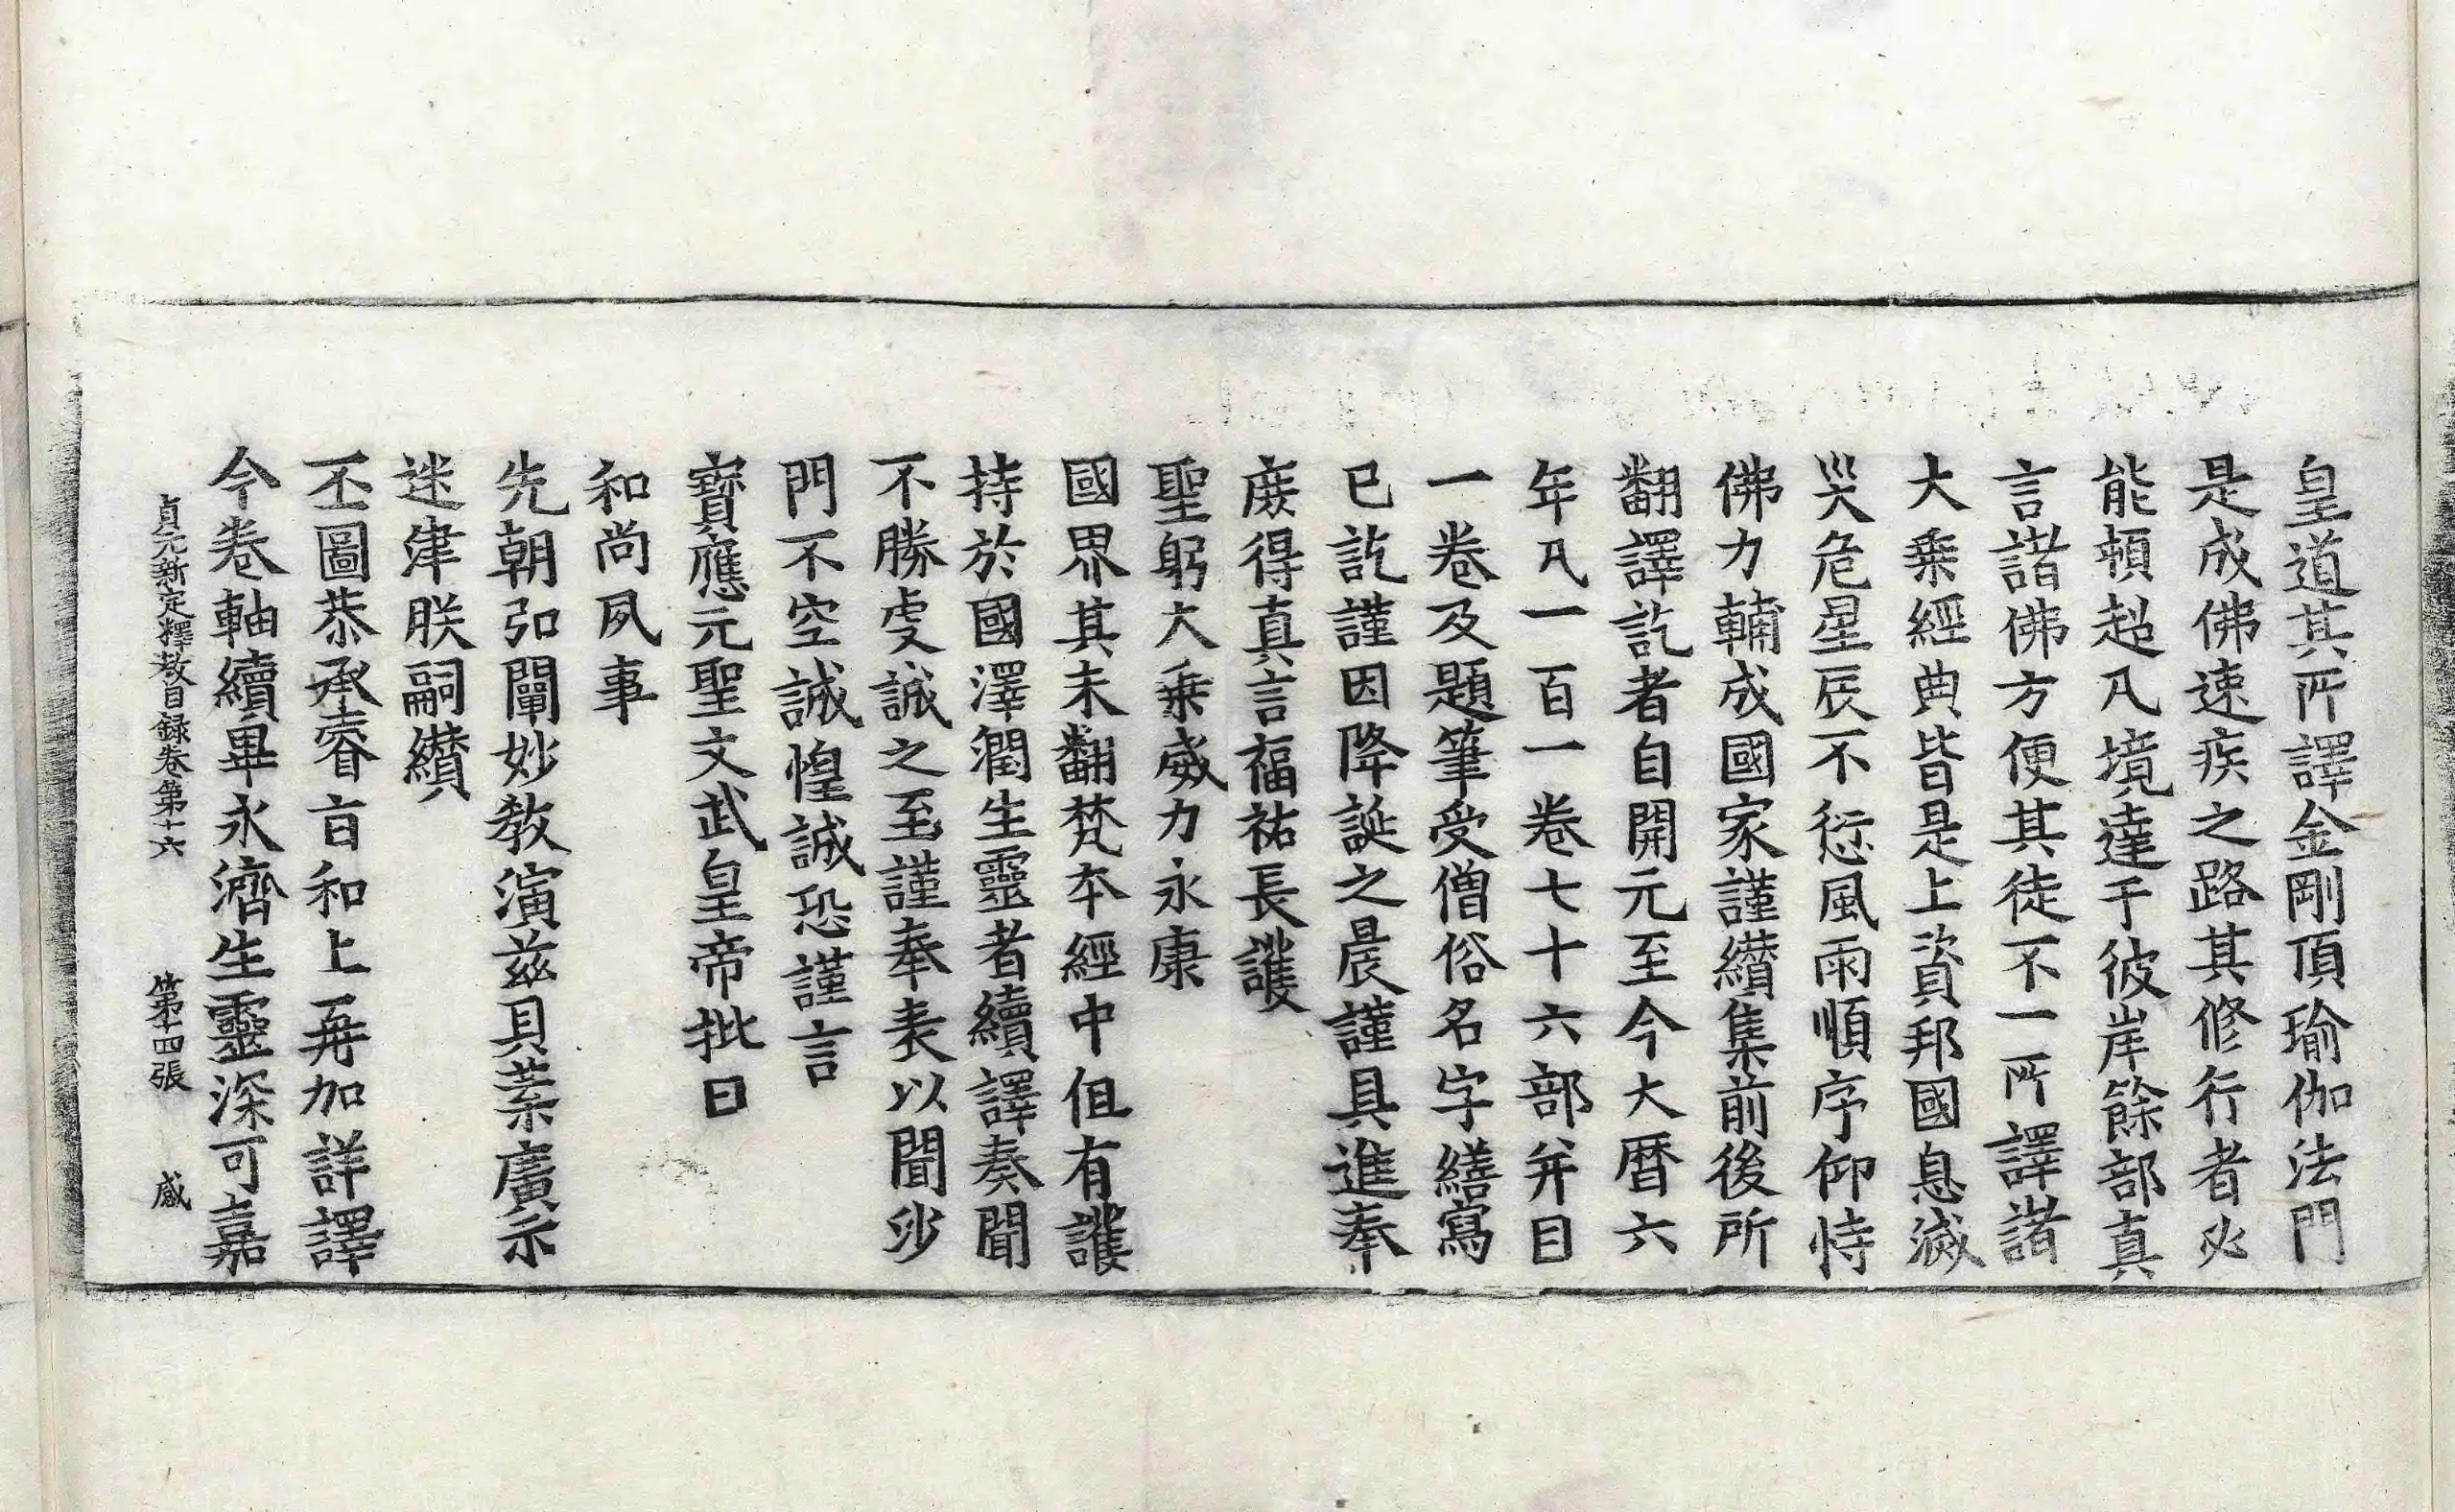 皇道其所譯金剛頂瑜伽法門
是成佛速疾之路其修行者必
能頓超凡境達于彼岸餘部真
言諸佛方便其徒不一所譯諸
大乗經典皆是上資邦國息滅
災危星辰不愆風雨順序仰恃
佛力輔成國家謹纉集前後所
翻譯訖者自開元至今大曆六
年凡一百一卷七十六部并目
一卷及題筆受僧俗名字繕寫
已訖謹因降誕之晨謹具進奉
庶得真言福祐長護
聖躬大乗威力永康
國界其未翻梵本經中但有護
持於國澤潤生靈者續譯奏聞
不勝虔誠之至謹奉表以聞沙
門不空誠惶誠恐謹言
寶應元聖文武皇帝批曰
和尚夙事
先朝弘闡妙教演兹貝葉廣示
迷津朕嗣纉
丕圖恭承睿旨和上再加詳譯
今卷軸續畢永濟生靈深可嘉
貞元新定釋教目録卷第十六 第十四張 感